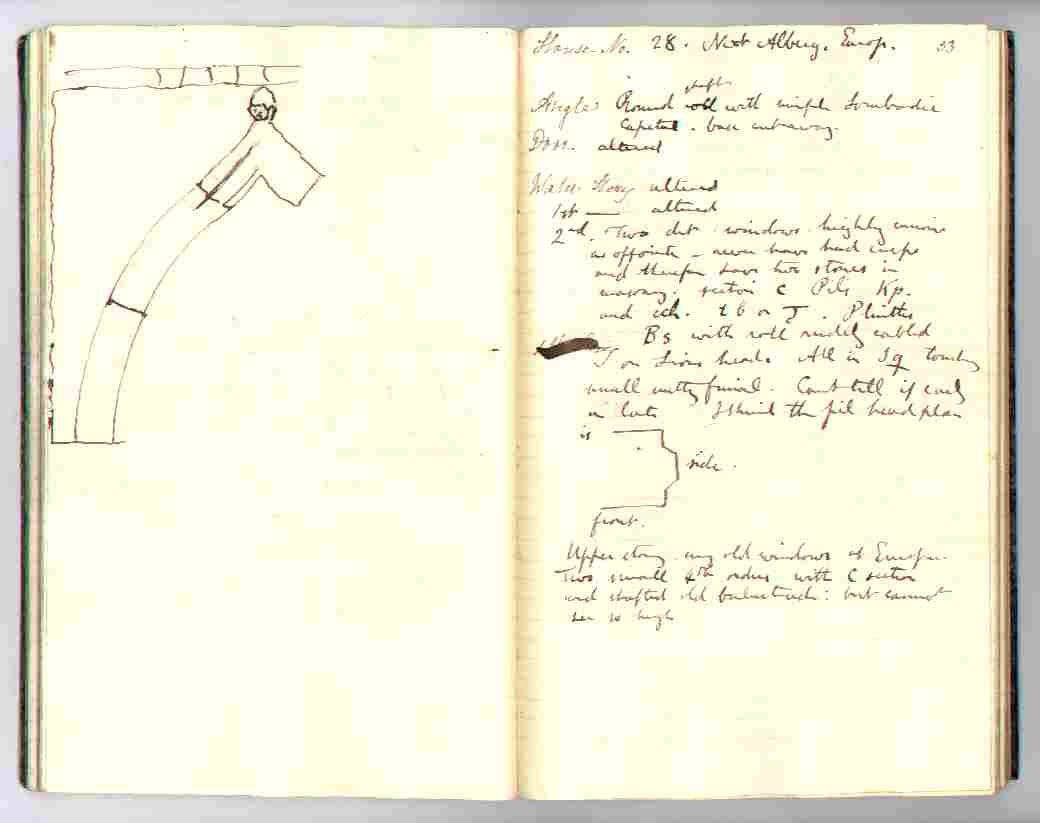 House No. 28. Next Alberg. Europ. 53
shaft
Angle Round roll with simple Lombardic
Capital. base cut away.
Door. altered
Water Story altered
1st — altered
2nd. Two det windows highly curious
as opposite – never have had cusps
and therefore have two stones in
masonry. section C Pils Kp.
and ch. or T. Plinths
Bs with roll rudely cabled
T on Lions heads All in Sq touching
small finial. Cant tell if early
or late I think the pil head plan
is
side.
front.
Upper story. my old windows of Europa.
Two small 4th orders with C section
and shafted old balustrade: but cannot
see so high